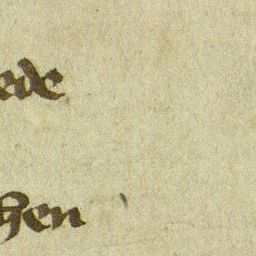 ede
hen